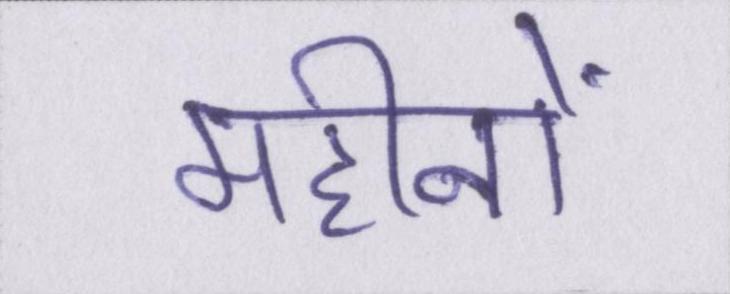 महीनों